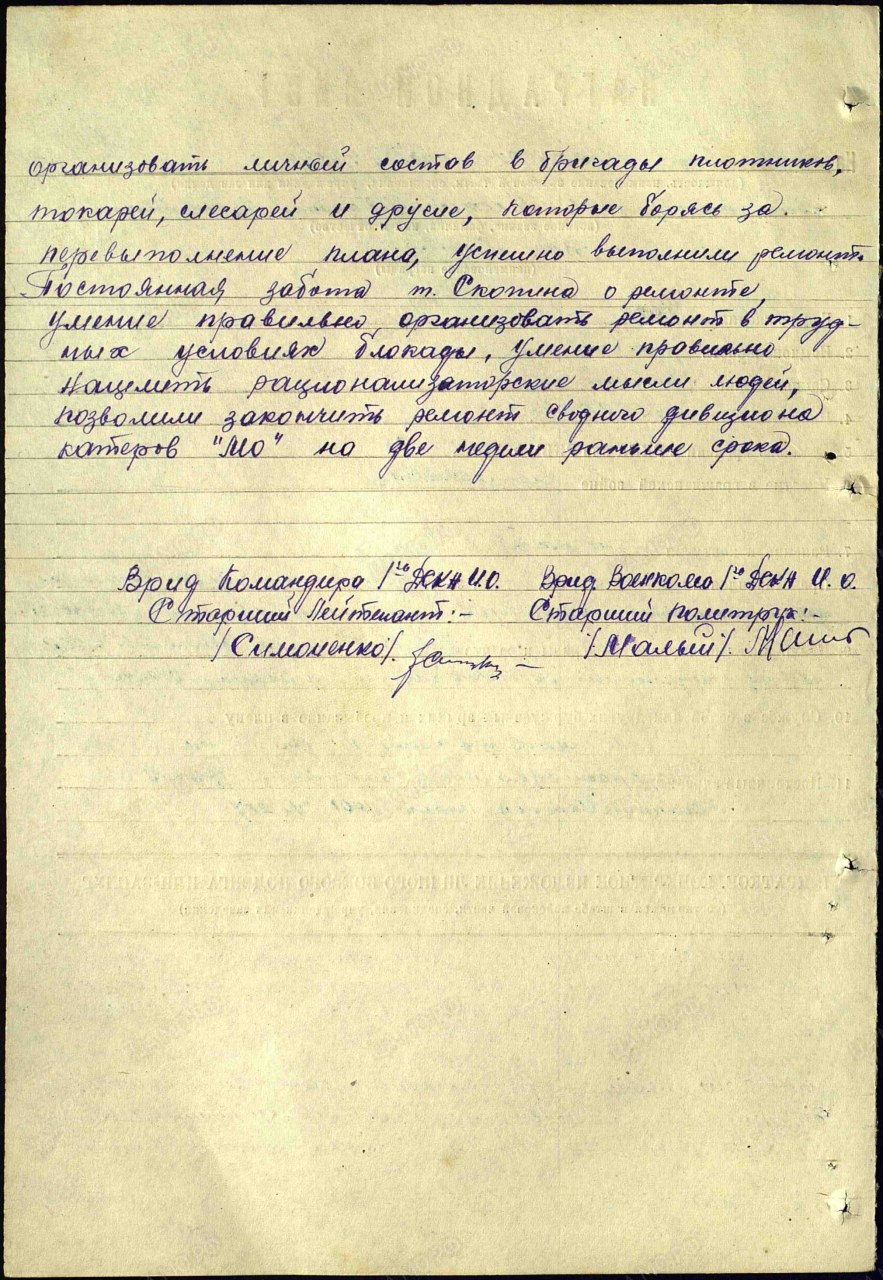 организовать личный состав в бригады плотников,
токарей, слесарей и другие, которые борясь за
перевыполнение плана, успешно выполнили ремонт.
Постоянная забота т. Скопина о ремонте,
умение правильно организовать ремонт в труд-
ных условиях блокады, умение правильно
нацелить рационализаторские мысли людей,
позволили закончить ремонт сводного дивизиона
катеров "МО" на две недели раньше срока.
Врид Командира 1го И.О. Врид Военкома 1го И.О.
Старший Лейтенант:- Старший политрук:-
/Симоненко/. /Малый/.